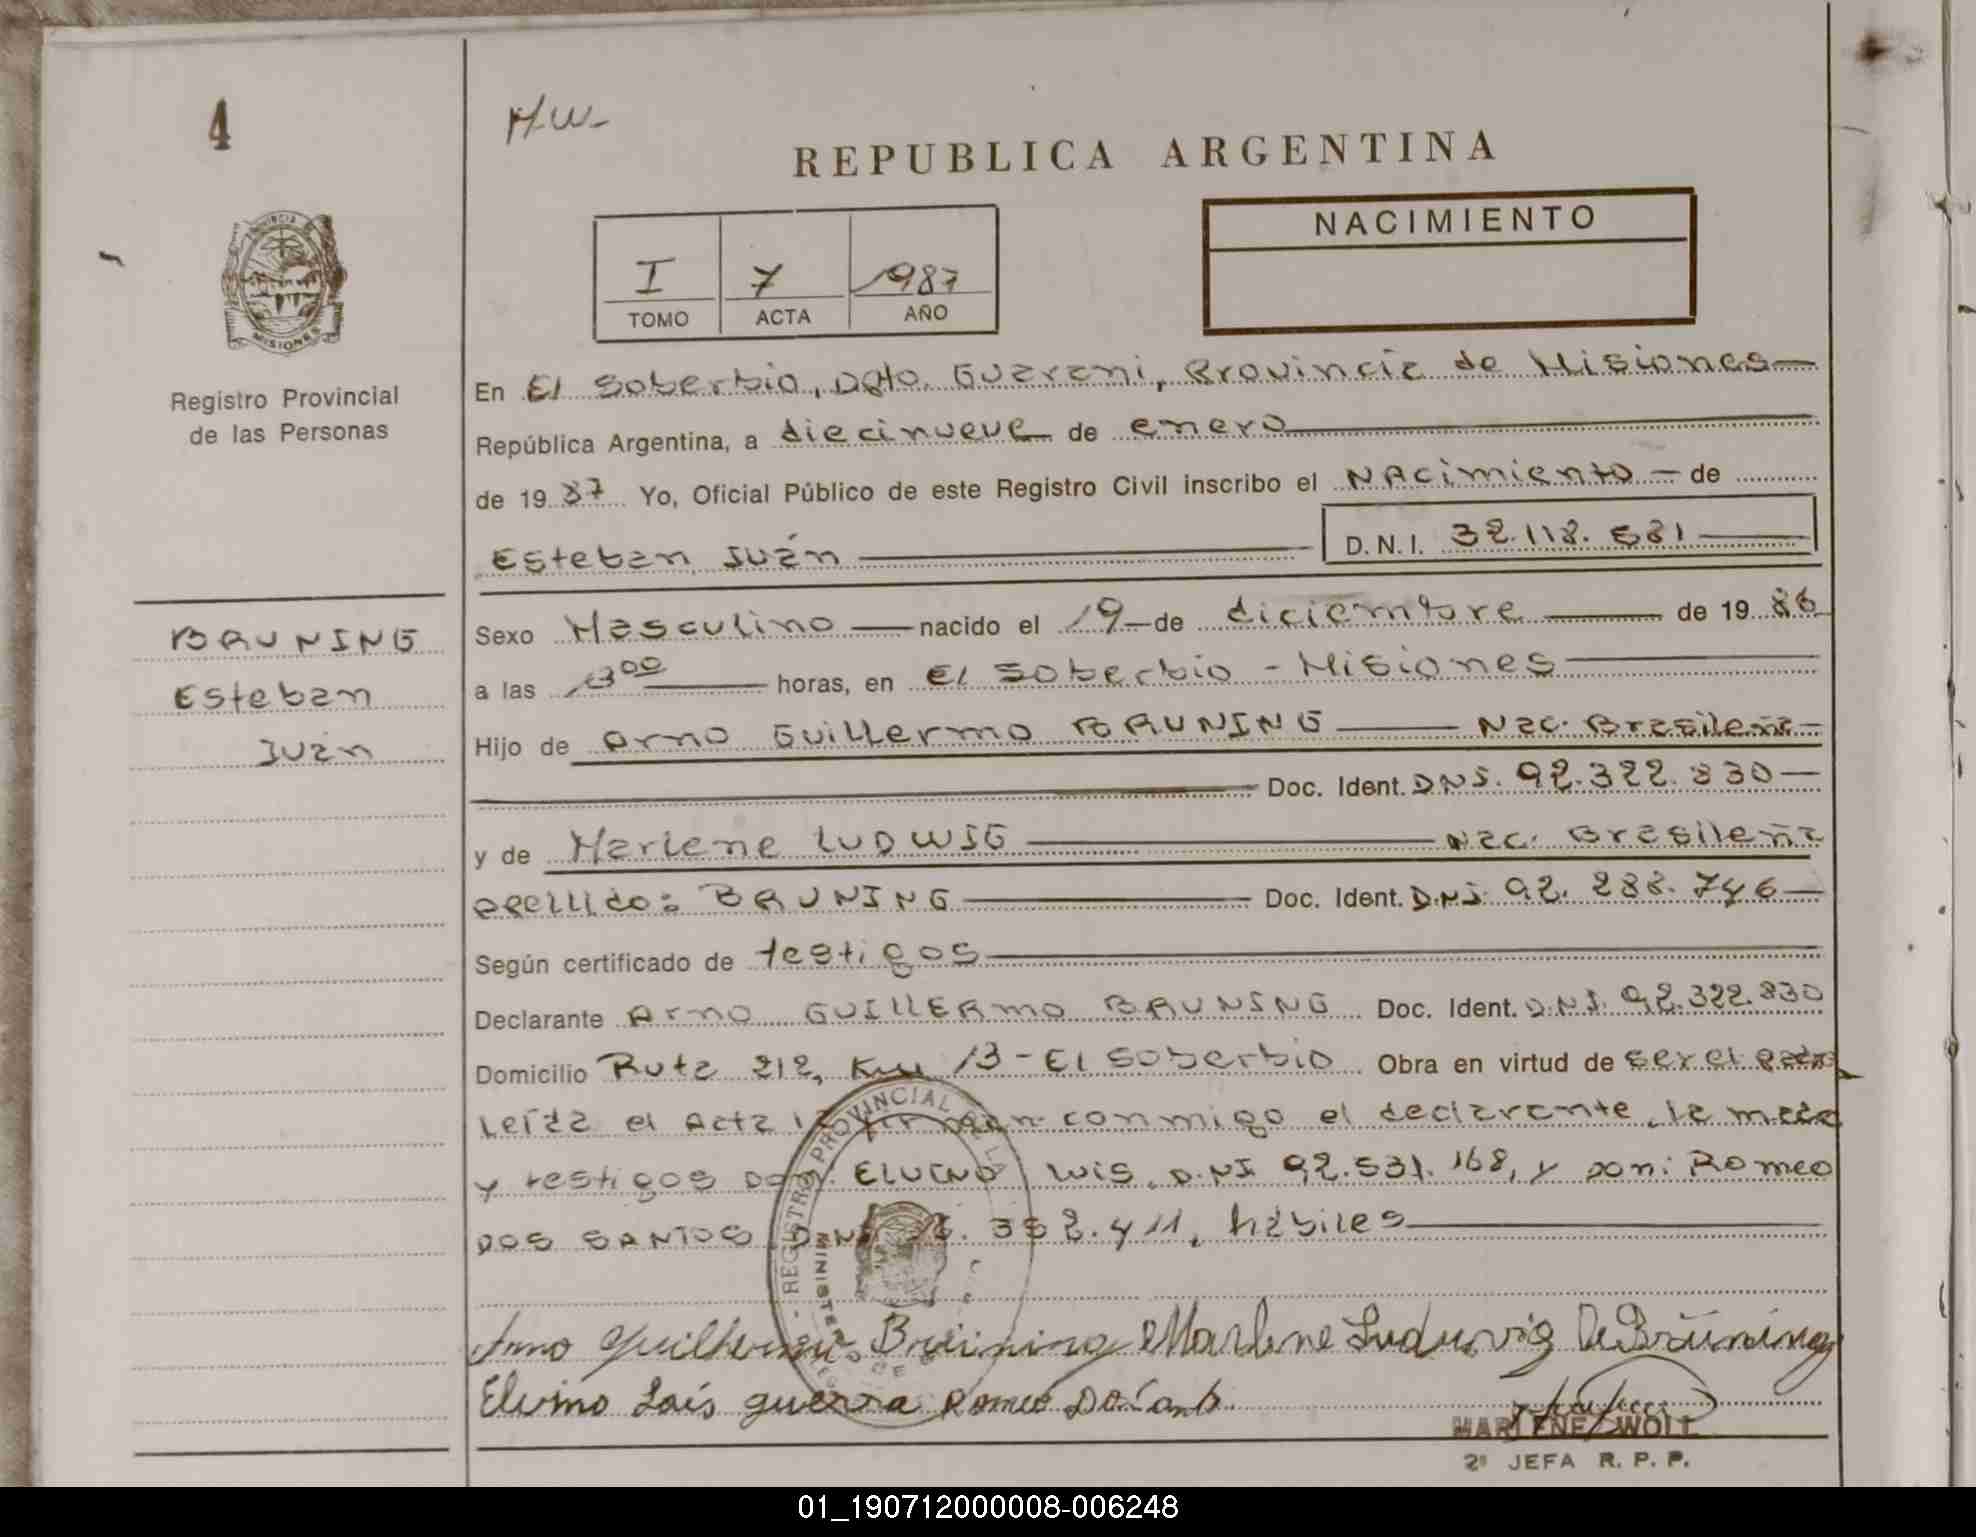 4
H.W-
REPUBLICA ARGENTINA
NACIMIENTO
I 7 1987
TOMO ACTA AÑO
PROVINCIA DE
MISIONES
Registro Provincial
de las Personas
BRUNING
Esteban
Iván
En El Soberbio, Dpto. Guarani, Provincia de Misiones
República Argentina, a diecinueve de enero
de 19 87 Yo, Oficial Público de este Registro Civil inscribo el NAcimiento de
Esteban Iván D.N.I. 32.118.581
Sexo Masculino nacido el 19 de diciembre de 19 86
a las 13 00 horas, en El Soberbio - Misiones
Hijo de Arno Guillermo BRUNING Nac. Brasileña
Doc. Ident. DNI. 92.322.830
y de Marlene LUDWIG Nac. Brasileña
apellido: BRUNING Doc. Ident. D.NI. 92.288.746
Según certificado de testigos
Declarante Arno GUILLERMO BRUNING Doc. Ident. D.NI. 92.322.830
Domicilio Ruta 212, Km 13 - El Soberbio Obra en virtud de ser el padre
Leída el Acta la firman conmigo el declarante, la madre
y testigos Don: ELVINO Luis, D.NI 92.531.168, y Don: Romeo
DOS SANTOS, D.NI. 352.411, hábiles
REGISTRO PROVINCIAL DE LA
MINISTERIO DE
Arno Guilherme Brüning Marlene Ludwig De Brüning
Elvino Luis guerra Romeo Dos Santos
MARLENE WOLL
2ª JEFA R. P. P.
01_190712000008-006248